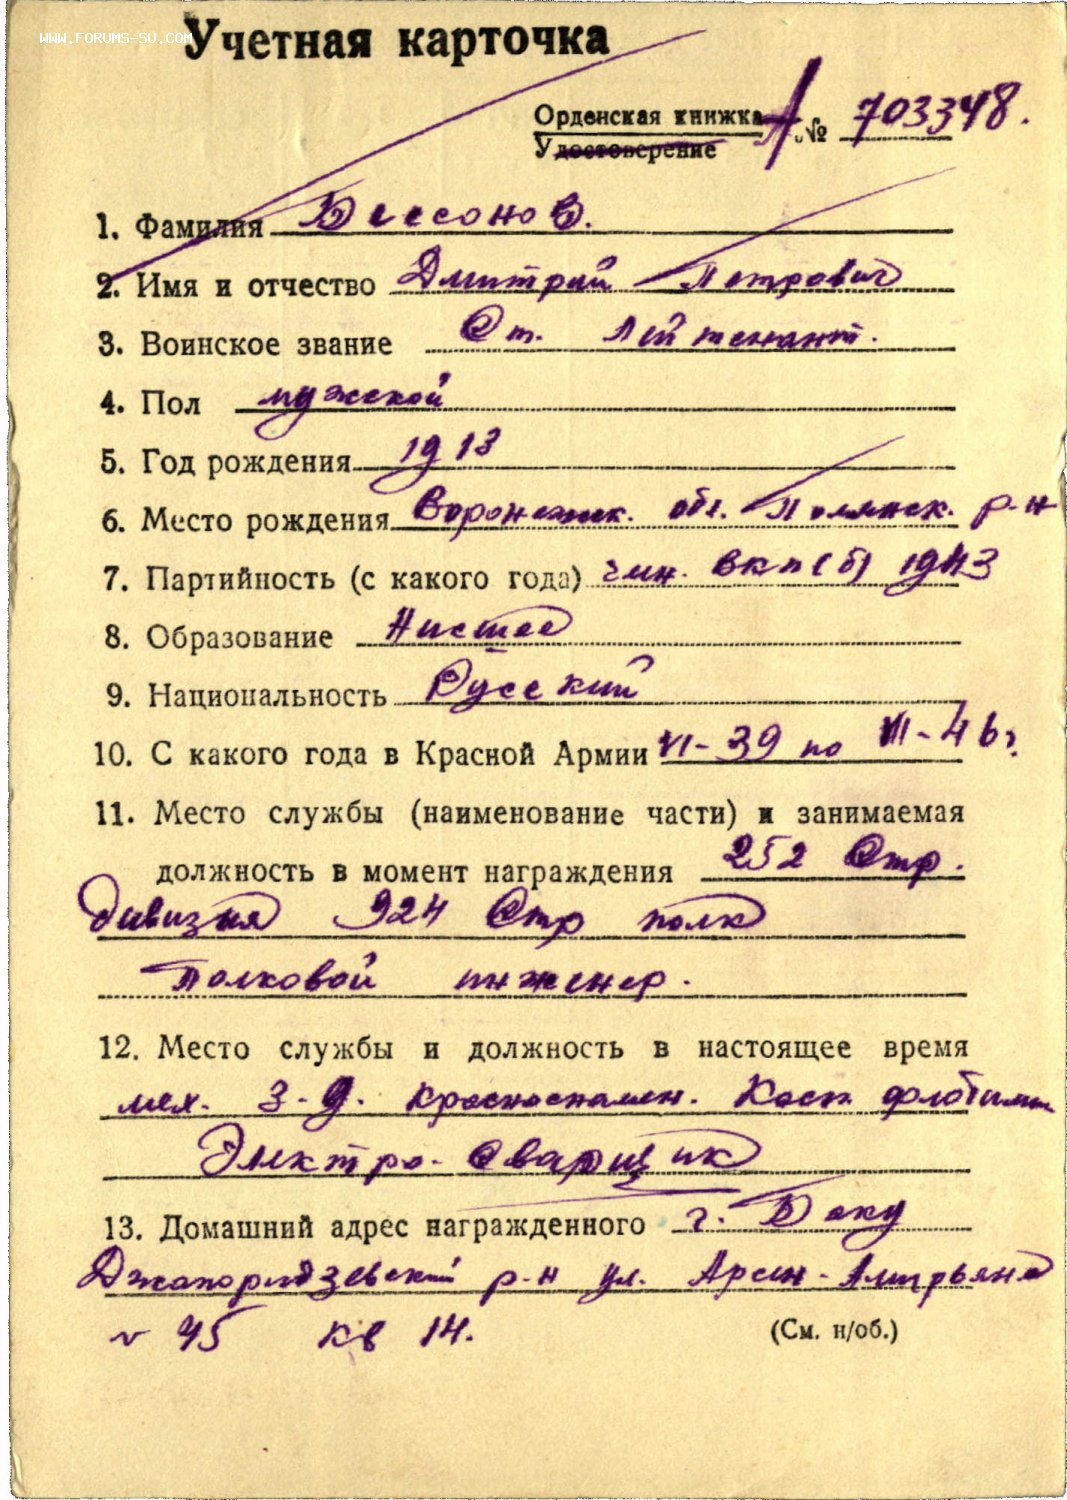 WWW.FORUMS-SU.COM
Учетная карточка
Орденская книжка А № 703348.
Удостоверение
1. Фамилия Бессонов.
2. Имя и отчество Дмитрий Петрович
3. Воинское звание Ст. Лейтенант.
4. Пол мужской
5. Год рождения 1913
6. Место рождения Воронежск. обл. р-н
7. Партийность (с какого года) член. ВКП(б) 1943
8. Образование Нисшее
9. Национальность Русский
10. С какого года в Красной Армии VI-39 по VII-46г.
11. Место службы (наименование части) и занимаемая
должность в момент награждения 252 Стр.
дивизия 924 Стр полк
полковой инженер.
12. Место службы и должность в настоящее время
мех. 3-д. Краснознамен. Касп. флотилии
Электро-Сварщик
13. Домашний адрес награжденного г. Баку
Джапоридзевский р-н ул. Арсен-Амирьяна
45 кв 14.
(См. н/об.)